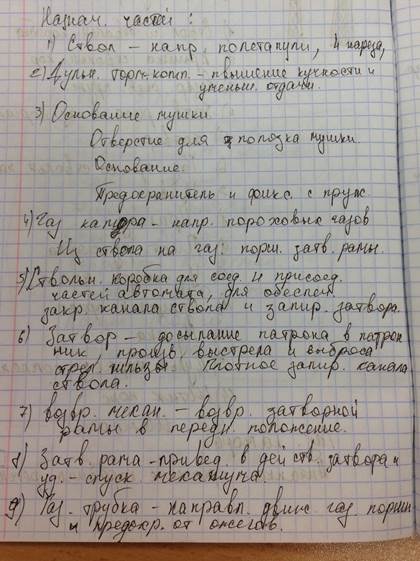 Назнач. частей:
1) Ствол - напр. полета пули, 4 нареза,
2) Дульн. торм-комп. - пвышение кучности и
уменьш. отдачи.
3) Основание мушки
Отверстие для полозка мушки.
Основание.
Предохранитель и фикс. с пруж.
4) Газ камора - напр. пороховых газов
Из ствола на газ. порш. затв. рамы.
5) Ствольн. коробка для соед. и присоед.
частей автомата, для обеспеч
закр. канала ствола и запир. затвора.
6) Затвор - досылание патрона в патрон
ник, произв. выстрела и выброса
стрел. гильзы. Плотное запир. канала
ствола.
7) возвр. механ. - возвр. затворной
рамы в передн. положение.
8) Затв. рама - привед. в дейтв. затвора и
уд. - спуск. механизма.
9) Газ. трубка - направл. движ газ. поршн
и предохр. от ожегов.